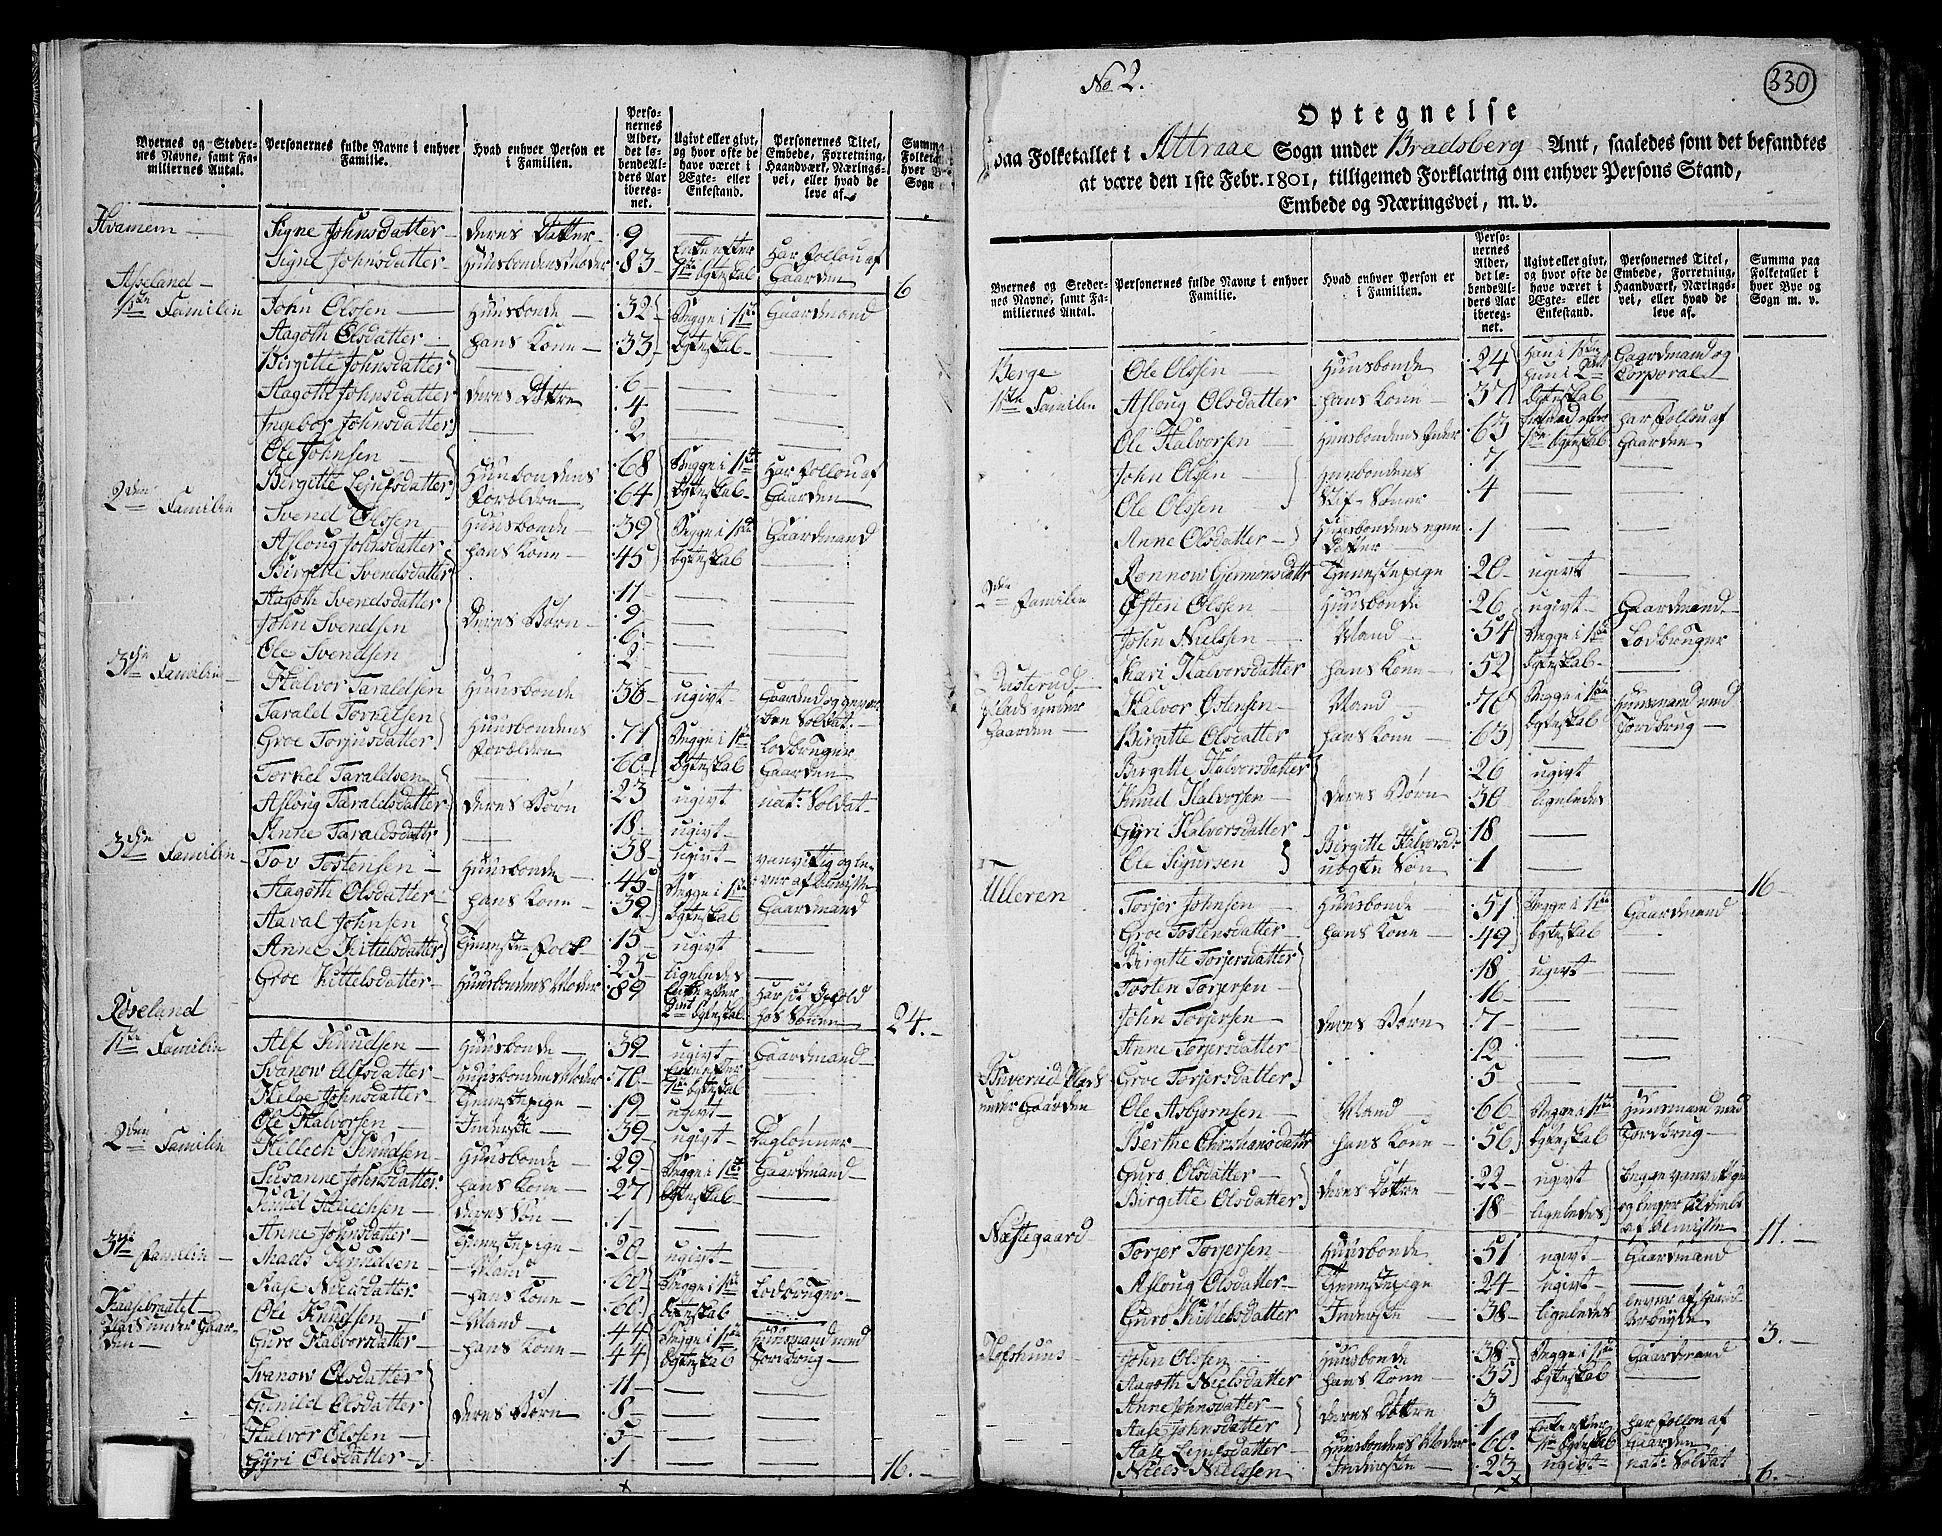 Byernes og Steder-
nes Navne, samt Fa-
miliernes Antal.
Personernes fulde Navne i enhver
Familie.
Hvad enhver Person er
i Familien.
Perso-
nernes
Alder,
det lø-
bende Al-
ders Aar
ibereg-
net.
Ugivt eller givt,
og hvor ofte de
have været i
Ægte- eller
Enkestand.
Personernes Titel,
Embede, Forretning,
Haandværk, Nærings-
vei, eller hvad de
leve af.
Summa
Folketal
hver B
Sogn
Signe Johnsdatter — deres Datter — 9 —
Signe Johnsdatter — Huusbondens Moder 83 — Enke efter 1ste Ægteskab Har Follou af Gaarden 6
1ste Familie John Olssen — Huusbonde — 32 Begge i 1ste Gaardmand
Aagoth Olsdatter — hans Kone — 33 Ægteskab —
Birgitte Johnsdatter — 6 —
Aagoth Johnsdatter deres Døttre 4 —
Ingebor Johnsdatter — 2 —
Ole Johnsen — Huusbondens 68 Begge i 1ste Har Follou af
Birgitte Lejufsdatter Forældre 64 Ægteskab Gaarden
2den Familie Svend Olssen — Huusbonde — 39 Begge i 1ste Gaardmand
Asloug Johnsdatter hans Kone — 45 Ægteskab —
Birgitte Svendsdatter 11 —
Aagoth Svendsdatter deres Børn 9 —
John Svendsen 6 —
Ole Svendsen 2 —
3die Familie — Halvor Taraldsen Huusbonde 36 ugivt
Tarald Torkelsen Huusbondens 71 Begge i 1ste Lodbruger
Groe Torjusdatter Forældre 60 Ægteskab Gaarden
Torkel Taraldsen 23 ugivt nat: Soldat
Asloug Taraldsdatter deres Børn 18 ugivt
Anne Taraldsdatter 38 ugivt
3die Familie — Tov Tostensen — Huusbonde 45 Begge i 1ste Gaardmand
Aagoth Olsdatter hans Kone — 39 Ægteskab
Aaval Johnsen 15 ugivt —
Anne Kittelsdatter Tieneste-Folk 25 ligeledes
Groe Kittelsdatter — Huusbondens Moder 89 Enke efter 2det Ægteskab hos Sønnen 24. —
Røseland
1ste Familie Alf Knudsen — Huusbonde — 39 ugivt Gaardmand
Svanow Alfsdatter — Huusbondens Moder 70 — Enke efter 1ste Ægteskab —
Helge Johnsdatter — Tienestepige 19 ugivt —
Ole Halvorsen — Inderste — 39 ugivt — Daglønner —
2den Familie Hellech Knudsen — Huusbonde 29 Begge i 1ste Gaardmand
Susanne Johnsdatter hans Kone — 27 Ægteskab —
Knud Hellechsen deres Søn 1 —
Anne Johnsdatter — Tienestepige — 20 ugivt —
3die Familie — Mads Knudsen — Mand — 60 Begge i 1ste Lodbruger
Aase Nielsdatter — hans Kone — 66 Ægteskab
Plads under Gaarden — Ole Knudsen — Mand — 44 Begge i 1ste Huusmand med
Guro Halvorsdatter — hans Kone — 44 Ægteskab Jordbrug —
Svanow Olsdatter 11 —
Gunild Olsdatter deres Børn 8 —
Halvor Olssen — 5 —
Gyri Olsdatter — 1 — 16. —
No 2.
330
Optegnelse
paa Folketallet i Attraae Sogn under Bradsberg Amt, saaledes som det befandtes
at være den 1ste Febr. 1801, tilligemed Forklaring om enhver Persons Stand,
Embede og Næringsvei, m. v.
Byernes og Steder-
nes Navne, samt Fa-
miliernes Antal.
Personernes fulde Navne i enhver
Familie.
Hvad enhver Person er
i Familien.
Perso-
nernes
Alder,
det lø-
bende Al-
ders Aar
ibereg-
net.
Ugivt eller givt,
og hvor ofte de
have været i
Ægte- eller
Enkestand.
Personernes Titel,
Embede, Forretning,
Haandværk, Nærings-
vei, eller hvad de
leve af.
Summa paa
Folketallet i
hver Bye og
Sogn m. v.
Berge Ole Olssen Huusbonde 24 Han i 1ste Hun i 2det Gaardmand og Corporal
1ste Familie Asloug Olsdatter hans Kone — 37 Ægteskab —
Ole Halvorsen — Huusbondens Fader 63 Har Follou af Gaarden
John Olssen Huusbondens 7 —
Ole Olssen — Stif-Sønner 4 —
Anne Olsdatter — Huusbondens egen Datter — 1 —
Rønnow Gjermonsdatter Tienestepige 20 ugivt —
2den Familie Østen Olssen — Huusbonde 26 ugivt — Gaardmand
John Nielssen — Mand — 54 Begge i 1ste Lodbruger
Kari Halvorsdatter hans Kone — 52 Ægteskab —
Plads under Gaarden — Halvor Østensen — Mand 70 Begge i 1ste Huusmand med
Birgitte Olsdatter hans Kone — 63 Ægteskab Jordbrug —
Birgitte Halvorsdatter 26 ugivt
Knud Halvorsen — deres Børn 30 ligeledes
Gyri Halvorsdatter — 18 —
Ole Sigursen Birgitte Halvorsd: uægte Søn 1 — 16 —
Ulleren Torjer Johnsen — Huusbonde 51 Begge i 1ste Gaardmand
Groe Tostensdatter — hans Kone — 49 Ægteskab
Birgitte Torjersdatter 18 ugivt —
Tosten Torjersen — 16 —
John Torjersen deres Børn 7 —
Anne Torjersdatter 12 —
Groe Torjersdatter 5 —
under Gaarden Ole Asbjørnsen — Mand 66 Begge i 1ste Huusmand med
Berthe Christiansdatter hans Kone — 56 Ægteskab Jordbrug —
Guro Olsdatter deres Døttre 22 ugivt
Birgitte Olsdatter 18 ligeledes 11. —
Næstegaard Torjer Torjersen — Huusbonde 51 ugivt — Gaardmand
Asloug Olsdatter — Tienestepige 24 ugivt —
Guro Kittelsdatter — Inderste — 38 ligeledes lever af Haand Arbeyde 3. —
Hofshuus — John Olssen — Huusbonde 38 Begge i 1ste Gaardmand
Aagoth Nielsdatter hans Kone — 35 Ægteskab —
Anne Johnsdatter — deres Døttre 3 —
Aase Johnsdatter 1 —
Aase Lejufsdatter — Huusbondens Moder 60 Enke efter 1ste Ægteskab Har Follou af Gaarden
Niels Nielssen Inderste — 23 ugivt — nat: Soldat 6. —